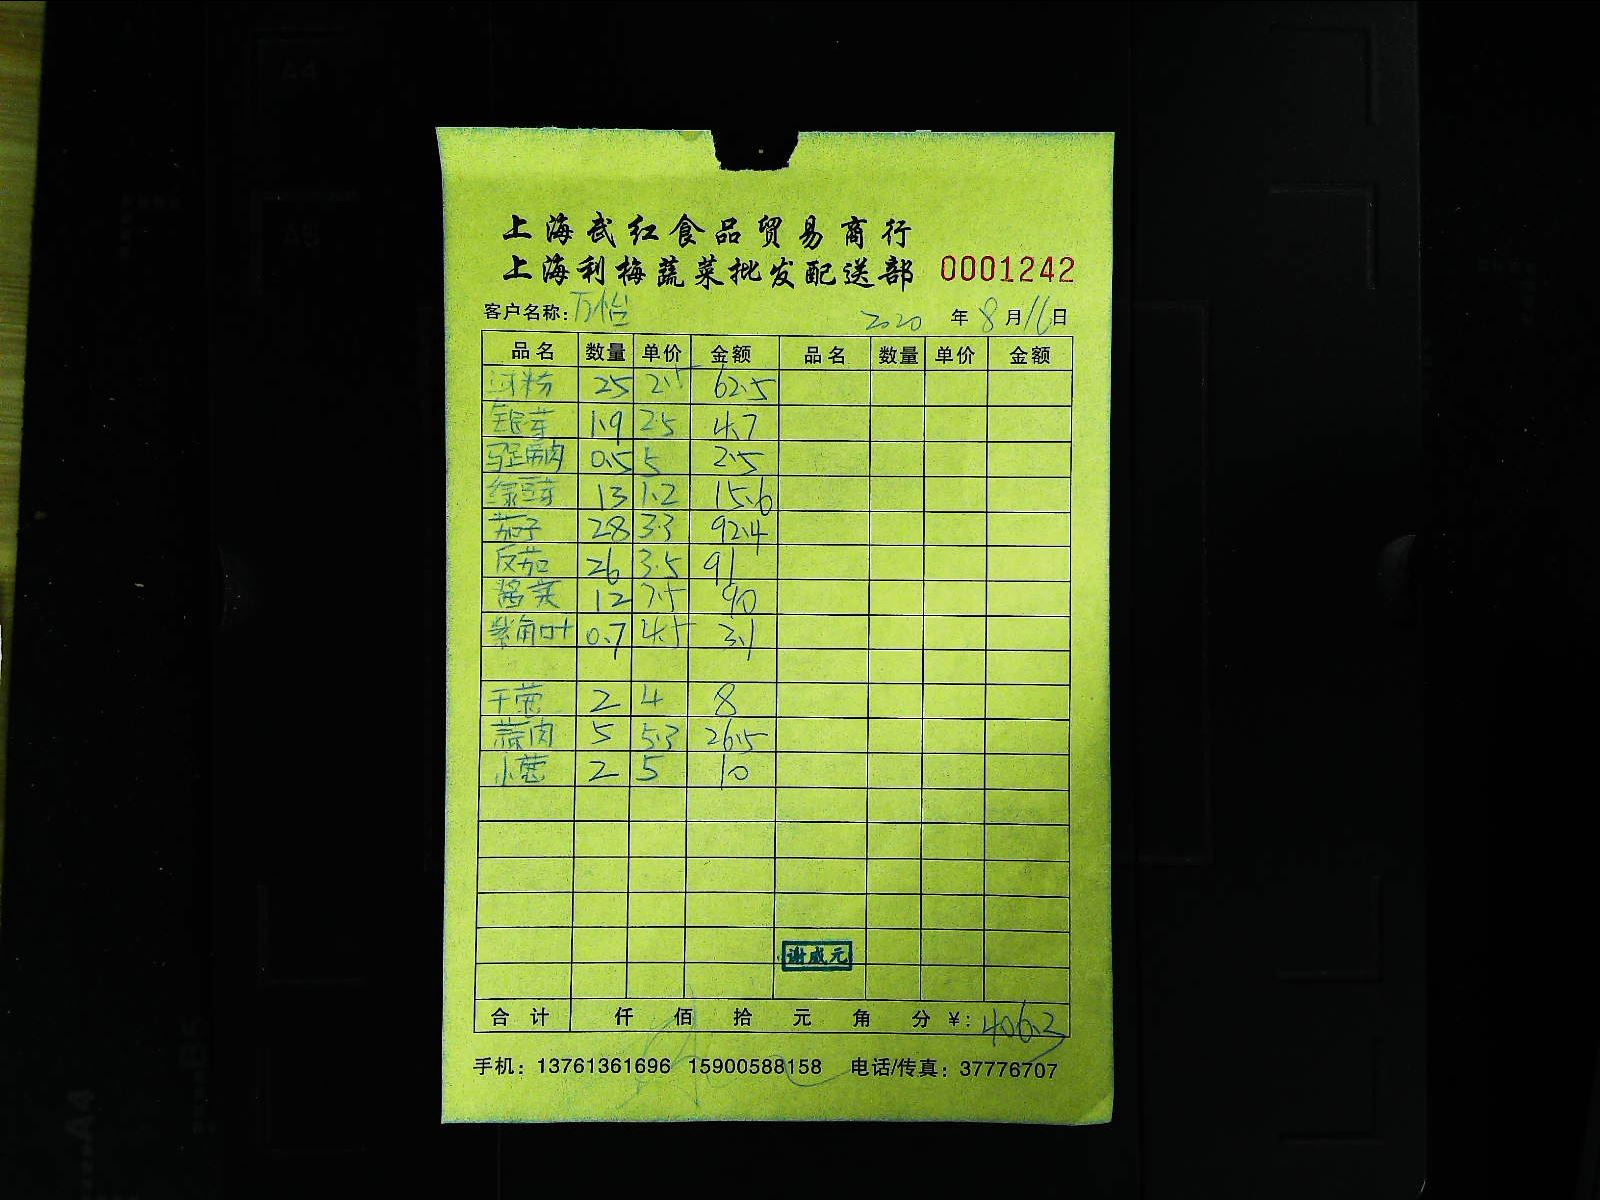 上海武红食品贸易商行
上海利梅蔬菜批发配送部 0001242
客户名称:万怡 2020 年 8 月 16 日
品名 数量 单价 金额 品名 数量 单价 金额
河粉 25 2.5 62.5
银芽 1.9 2.5 4.7
0.5 5 2.5
绿豆芽 13 1.2 15.6
茄子 28 3.3 92.4
反茄 26 3.5 91
12 7.5 90
紫角叶 0.7 4.5 3.1
干葱 2 4 8
蒜肉 5 5.3 26.5
小葱 2 5 10
谢成元
合计 仟 佰 拾 元 角 分 ¥: 406.3
手机: 13761361696 15900588158 电话/传真: 37776707